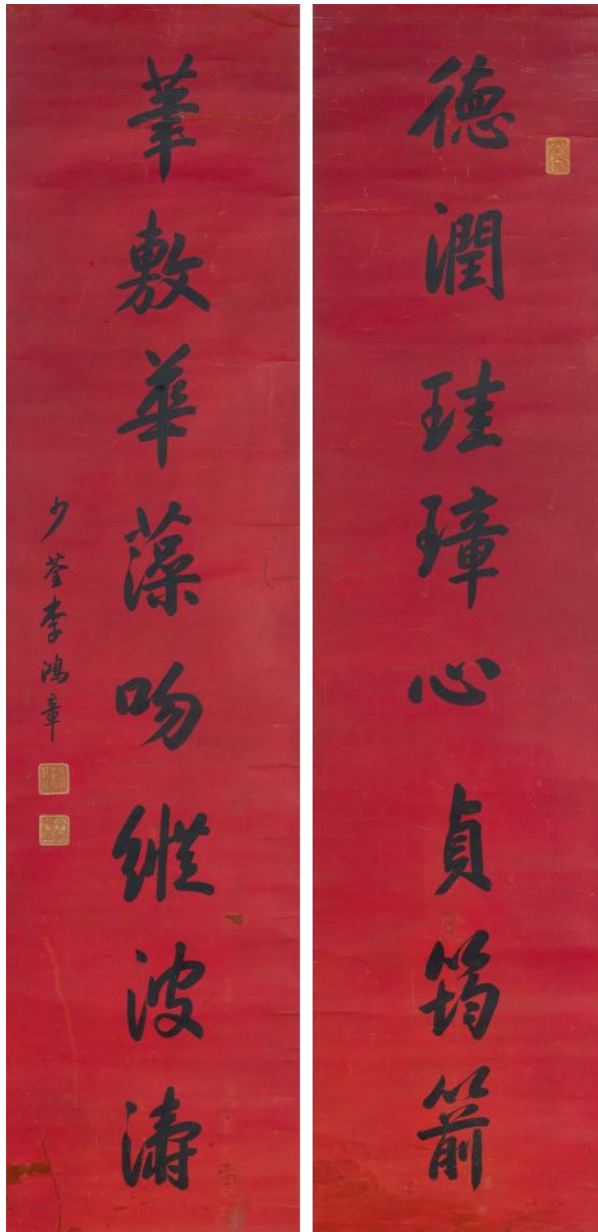 德潤珪璋心貞筠箭
筆敷華藻吻縱波濤
少荃李鴻章